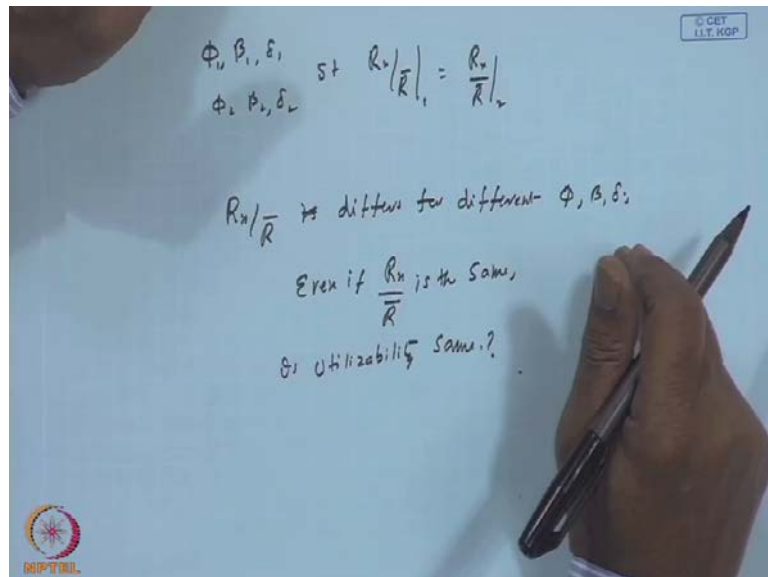 © CET
I.I.T. KGP
Φ₁, β₁, δ₁
Φ₂ β₂, δ₂
st Rₙ/R̄|₁ = Rₙ/R̄|₂
Rₙ/R̄ differs for different Φ, β, δ,
Even if Rₙ/R̄ is the same,
Is utilizability same.?
NPTEL